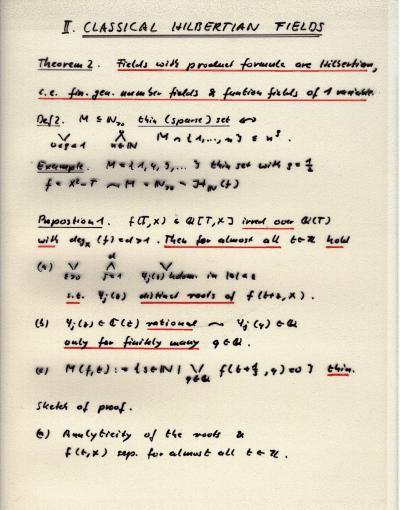 II. CLASSICAL HILBERTIAN FIELDS
Theorem 2. Fields with product formula are Hilbertian,
i.e. fin. gen. number fields & function fields of 1 variable.
Def 2. M ⊆ ℕ>0 thin (sparse) set ⇔
⋁ 0<ς<1 ⋀ n∈ℕ M ∩ {1,...,n} ≤ n^ς
Example. M = {1, 4, 9, ... } thin set with ς = 1/2
f = X² - T ⤳ M = ℕ>0 - H_ℕ(f)
Proposition 1. f(T,X) ∈ ℚ[T,X] irred over ℚ(T)
with deg_X (f) = d > 1. Then for almost all t∈ℤ hold
(a) ⋁ ε>0 ⋀ j=1 d ⋁ φj(s) holom. in |s|<ε
s.t. φj(s) distinct roots of f(t+s,X).
(b) φj(s) ∈ ℂ(s) rational ⤳ φj(q) ∈ ℚ
only for finitely many q∈ℚ.
(c) M(f,t) := {s∈ℕ | ⋁ q∈ℚ f(t+1/s, q) = 0 } thin.
Sketch of proof.
(a) Analyticity of the roots &
f(t,X) sep. for almost all t∈ℤ.